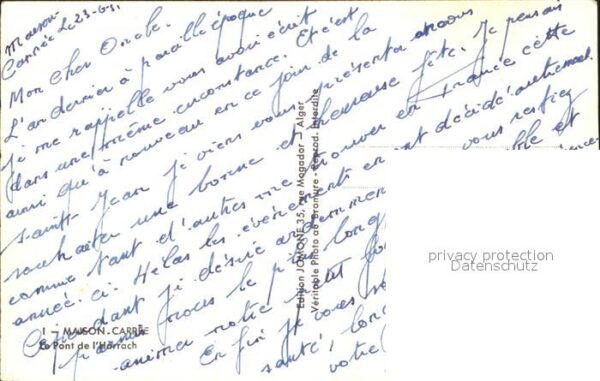 Maison-
Carrée le 23-6-51
Mon cher Oncle.
L'an dernier à pareille époque
je me rappelle vous avoir écrit
dans une même circonstance. Et c'est
ainsi qu'à nouveau en ce jour de la
Saint-Jean je viens vous présenter et vous
souhaiter une bonne et heureuse fête. Je pensais
comme tant d'autres me trouver en France cette
année-ci. Hélas les événements en ont décidé autrement.
Cependant je désire ardemment vous restiez
parmi nous le plus long
animer notre petit
Enfin je vous
santé,
votre
1 — MAISON-CARRÉE
Le Pont de l'Harrach
Edition JOMONE 35, rue Mogador — Alger
Véritable Photo au Bromure - Reprod. Interdite
privacy protection
Datenschutz